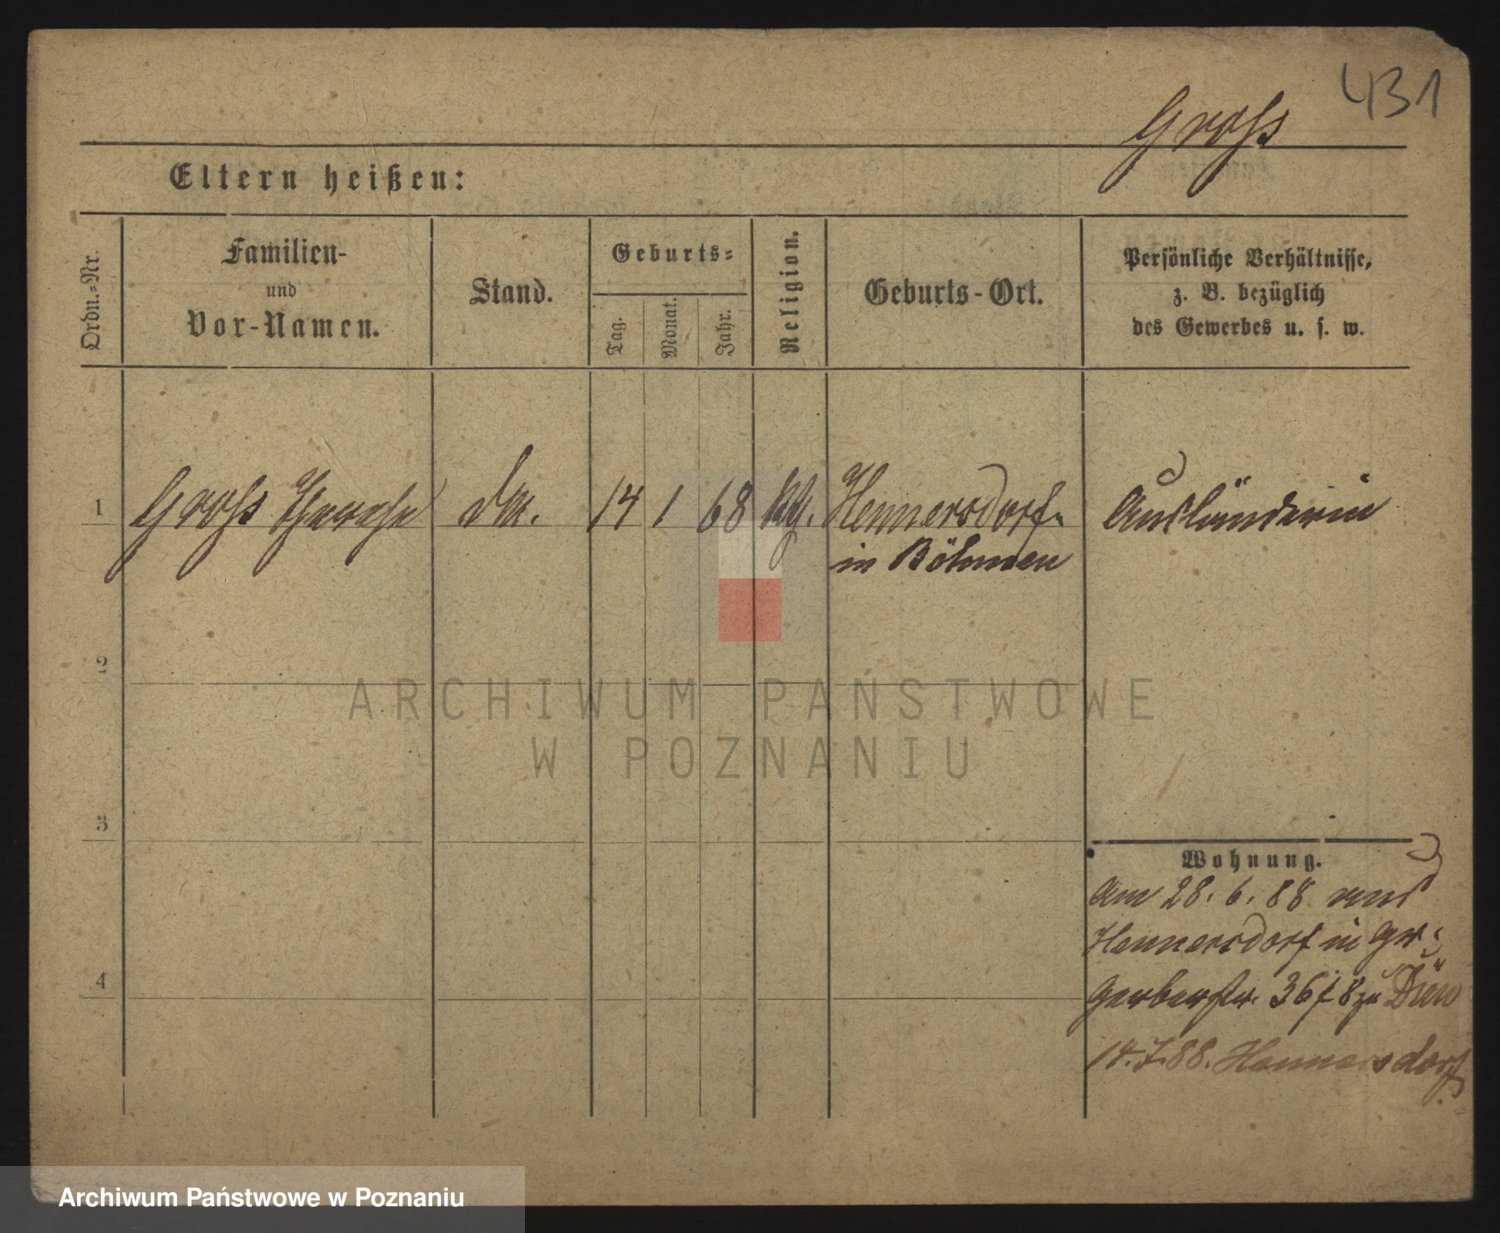 431
Gross
Eltern heißen:
Ordn.-Nr.
Familien-
und
Vor-Namen.
Stand.
Geburts-
Tag.
Monat.
Jahr.
Religion.
Geburts-Ort.
Persönliche Verhältnisse,
z. B. bezüglich
des Gewerbes u. s. w.
1 Gross Therese 14 1 68 kth. Hennersdorf. Ausländerin
in Böhmen
2
ARCHIWUM PAŃSTWOWE
W POZNANIU
3
Wohnung.
Am 28. 6. 88 aus
Hennersdorf in Gr.
4
Gerberstr. 36 / 8 zu
14.7.88. Hennersdorf
Archiwum Państwowe w Poznaniu